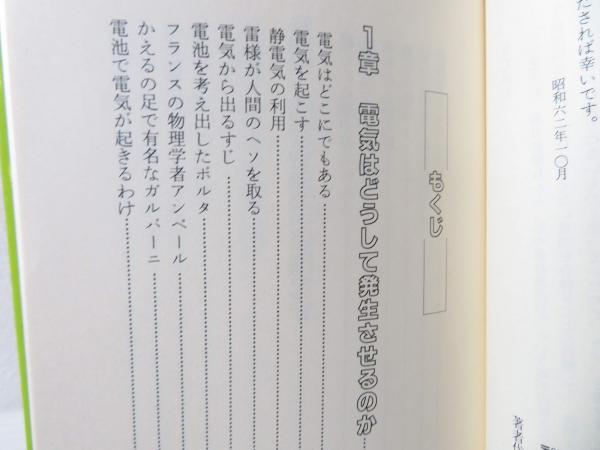 だされば幸いです。
昭和六二年一〇月
もくじ
1章 電気はどうして発生させるのか
電気はどこにでもある
電気を起こす
静電気の利用
雷様が人間のヘソを取る
電気から出るすじ
電池を考え出したボルタ
フランスの物理学者アンペール
かえるの足で有名なガルバーニ
電池で電気が起きるわけ